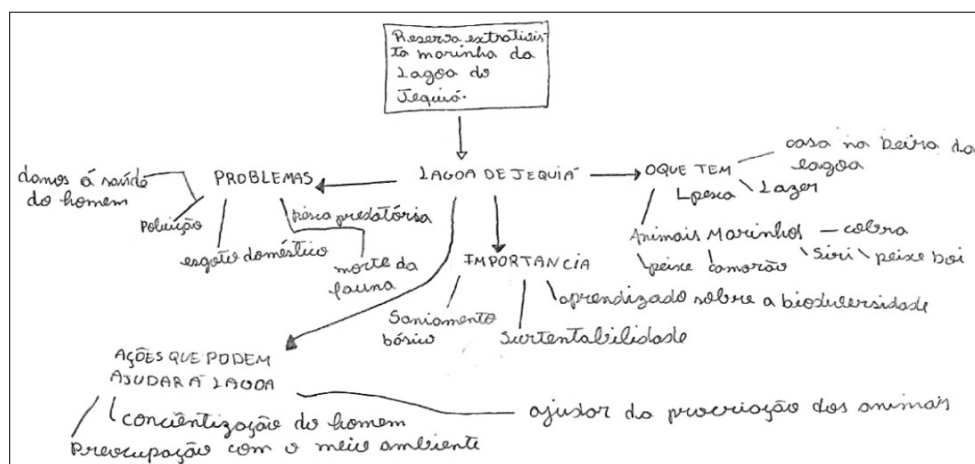 Reserva extrativis-
ta marinha da
Lagoa do
Jequiá.
LAGOA DE JEQUIÁ
PROBLEMAS
danos á saúde
do homem
Poluição
esgoto doméstico
pesca predatória
morte da
fauna
OQUE TEM
casa na beira da
lagoa
pesca
Lazer
Animais Marinhos
cobra
peixe
camarão
Siri
peixe boi
IMPORTANCIA
Saniamento
básico
Sustentabilidade
aprendizado sobre a biodiversidade
AÇÕES QUE PODEM
AJUDAR Á LAGOA
concientização do homem
Preocupação com o meio ambiente
ajudar da procriação dos animais